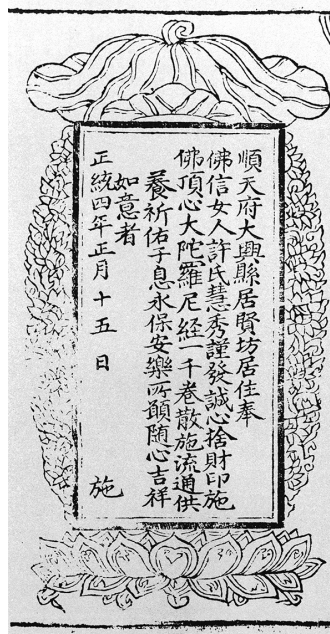 順天府大興縣居賢坊居住奉
佛信女人許氏慧秀謹發誠心捨財印施
佛頂心大陀羅尼經一千卷散施流通供
養祈佑子息永保安樂所願随心吉祥
如意者
正統四年正月十五日 施